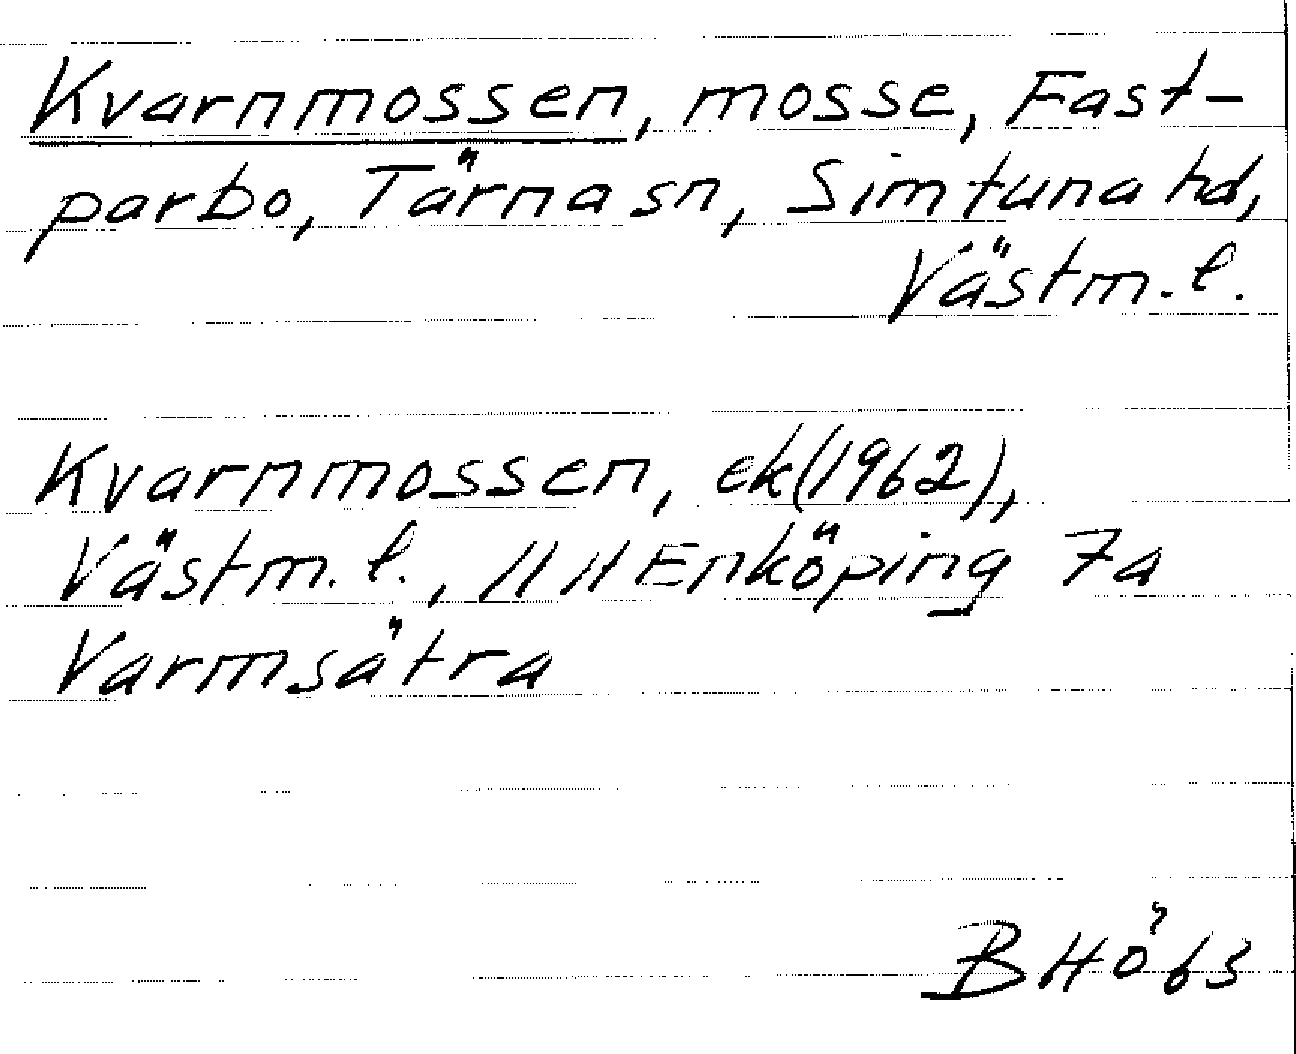 Kvarnmossen, mosse, Fast-
parbo, Tärna sn, Simtuna hd,
Västm.l.
Kvarnmossen, ek(1962),
Västm.l., 11 H Enköping 7a
Varmsätra
BHÖ63